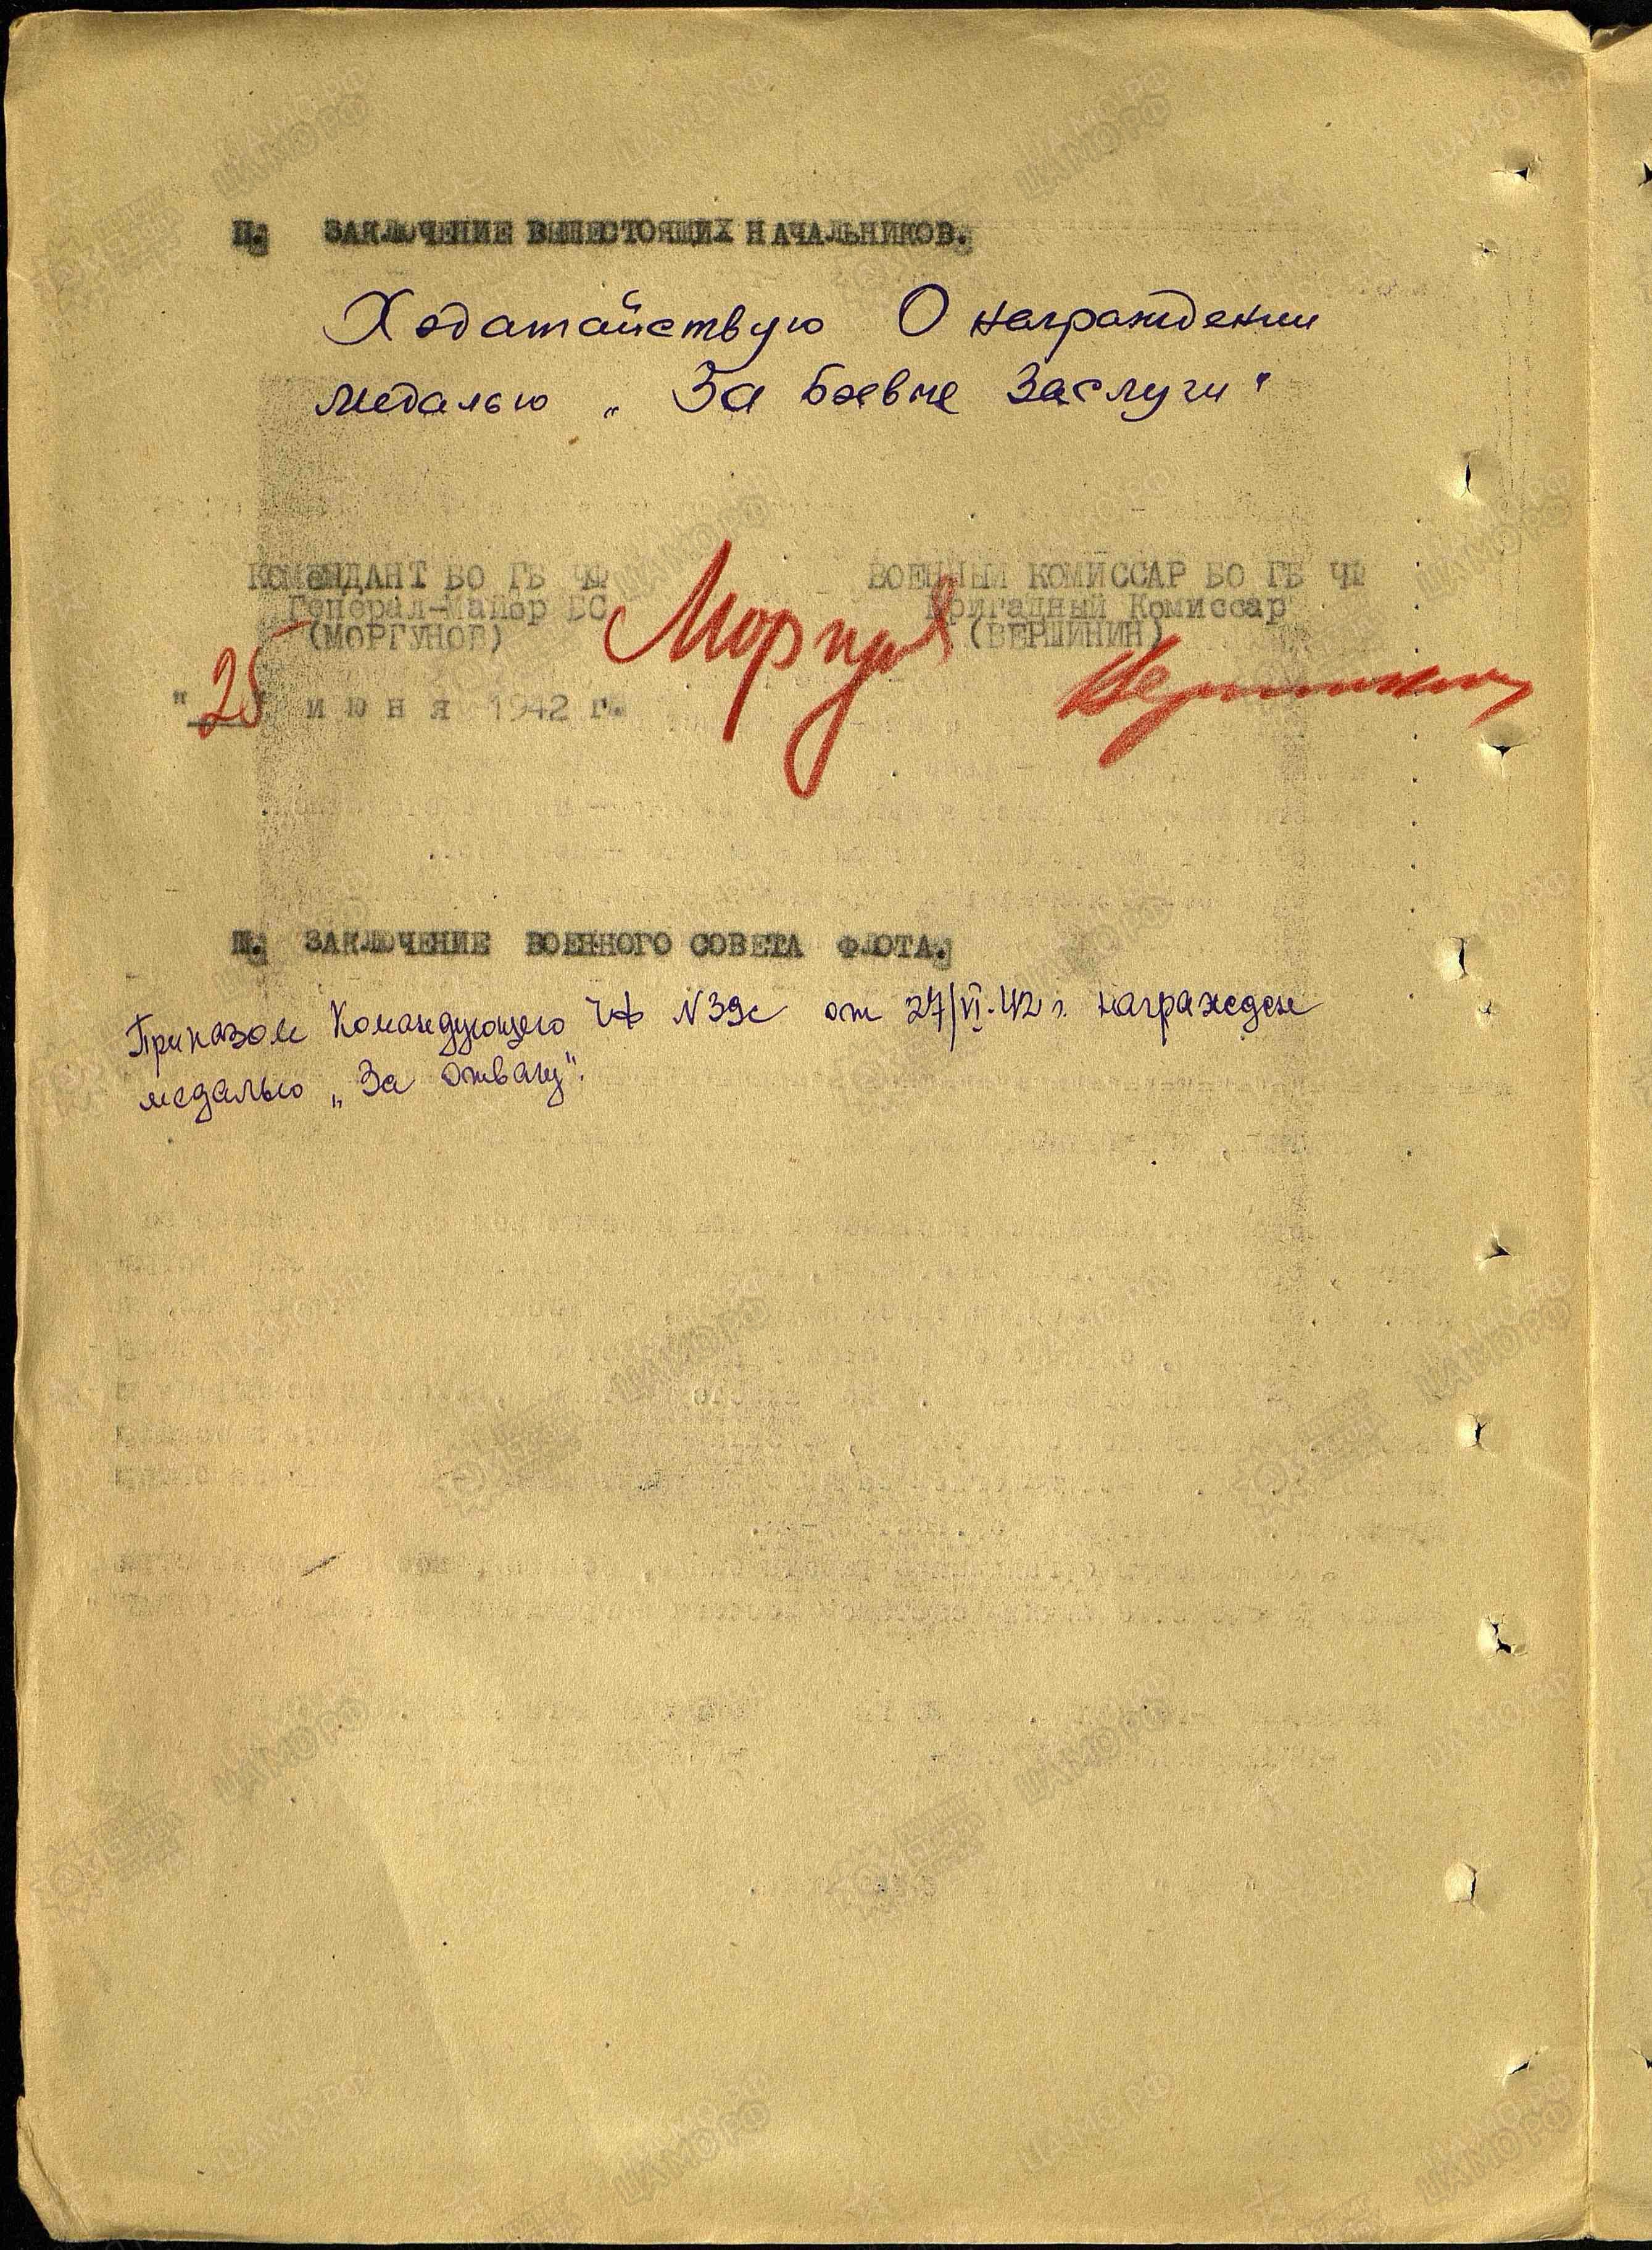 II. ЗАКЛЮЧЕНИЕ ВЫШЕСТОЯЩИХ НАЧАЛЬНИКОВ.
Ходатайствую О награждении
медалью „За Боевые Заслуги"
КОМЕНДАНТ БО ГБ ЧФ
Генерал-Майор БС
(МОРГУНОВ)
Моргунов
ВОЕННЫЙ КОМИССАР БО ГБ ЧФ
Бригадный Комиссар
(ВЕРШИНИН)
Вершинин
"25" июня 1942 г.
III. ЗАКЛЮЧЕНИЕ ВОЕННОГО СОВЕТА ФЛОТА.
Приказом Командующего ЧФ N39с от 27/VI-42 г. награжден
медалью „За отвагу".